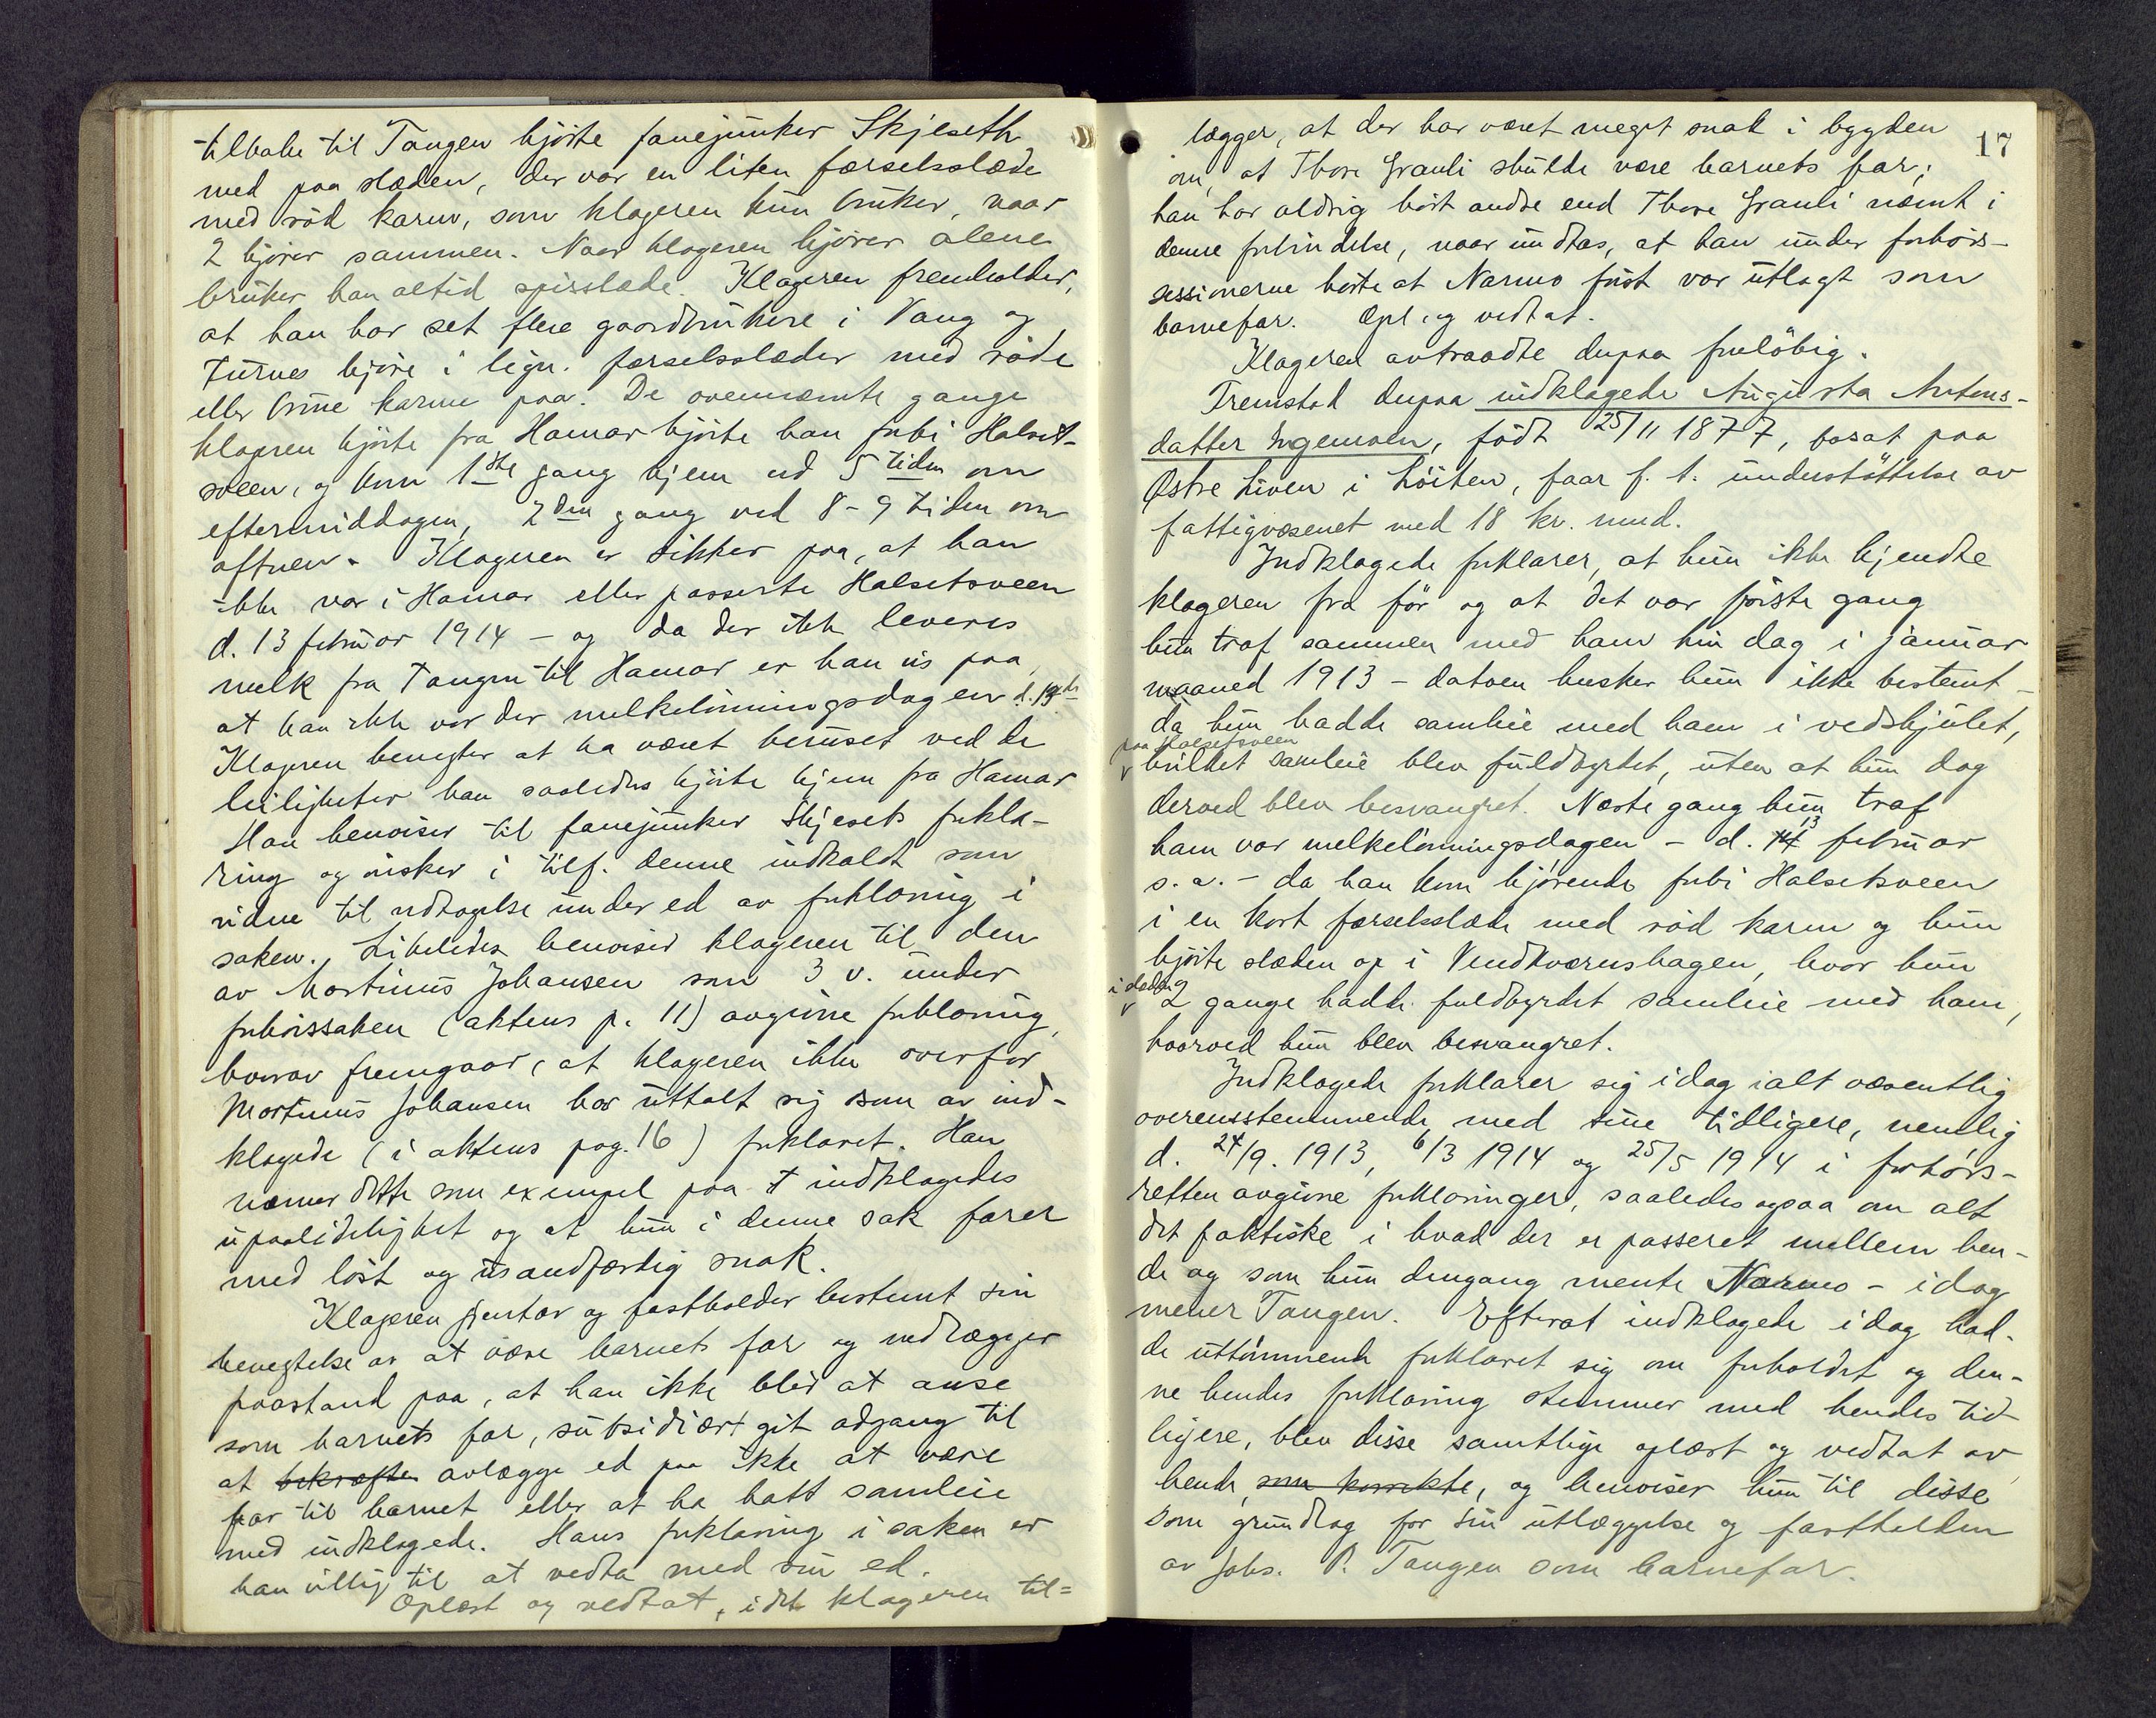 tilbake til Tangen kjörte fanejunker Skjeseth
med paa slæden, der var en liten forselsslæde
med röd karm, som klageren kun bruker, naar
2 kjörer sammen. Naar klageren kjörer alene
bruker han altid spisslæde. Klageren fremholder,
at han har set flere gaardbrukere i Vang og
Furnes kjöre i lign. forselsslæder med röde
eller brune karme paa. De ovennævnte gange
klageren kjörte fra Hamar kjörte han forbi Halset-
sveen, og kom 1ste gang hjem ved 5 tiden om
eftermiddagen, 2den gang ved 8-9 tiden om
aftnen. Klageren er sikker paa, at han
ikke var i Hamar eller passerte Halsetsveen
d. 13 februar 1914 – og da der ikke leveres
melk fra Tangen til Hamar er han vis paa,
at han ikke var der melkelönningsdagen d. 13de
Klageren benegter at ha været beruset ved de
leiligheter han saaledes kjörte hjem fra Hamar
Han henviser til fanejunker Skjesets forkla-
ring og önsker i tilf. denne indkaldt som
vidne til vedtagelse under ed av forklaring i
saken. Likeledes henviser klageren til den
av Martinus Johansen som 3 v. under
forhörssaken (aktens p. 11) avgivne forklaring,
hvorav fremgaar, at klageren ikke overfor
Martinus Johansen har uttalt sig som av ind-
klagede (i aktens pag. 16) forklaret. Han
nævner dette som exempel paa indklagedes
upaalidelighet og at hun i denne sak farer
med löst og usandfærdig snak.
Klageren gjentar og fastholder bestemt sin
benegtelse av at være barnets far og nedlægger
paastand paa, at han ikke blir at anse
som barnets far, subsidiært git adgang til
at bekræfte avlægge ed paa ikke at være
far til barnet eller at ha hatt samleie
med indklagede. Hans forklaring i saken er
han villig til at vedta med sin ed.
Oplæst og vedtat, idet klageren til=
17
lægger, at der har været meget snak i bygden
om, at Thore Grauli skulde være barnets far;
han har aldrig hört andre end Thore Grauli nævnt i
denne forbindelse, naar undtas, at han under forhörs-
sessionerne hörte at Narmo först var utlagt som
barnefar. Opl. og vedtat.
Klageren avtraadte derpaa foreløbig.
Fremstod derpaa indklagede Augusta Antons-
datter Engemoen, född 25/11 1877, bosat paa
Østre Liven i Löiten, faar f. t. understöttelse av
fattigvæsenet med 18 kr. mnd.
Indklagede forklarer, at hun ikke kjendte
klageren fra för og at det var förste gang
hun traf sammen med ham hin dag i januar
maaned 1913 – datoen husker hun ikke bestemt –
da hun hadde samleie med ham i vedskjulet,
paa Halsetsveen
hvilket samleie blev fuldbyrdet, uten at hun dog
derved blev besvangret. Næste gang hun traf
ham var melkelönningsdagen – d. 13 februar
s. a. – da han kom kjörende forbi Halsetsveen
i en kort forselsslæde med röd karm og hun
kjörte slæden op i Vendkværnshagen, hvor hun
i slæden
2 gange hadde fuldbyrdet samleie med ham,
hvorved hun blev besvangret.
Indklagede forklarer sig idag ialt væsentlig
overensstemmende med sine tidligere, nemlig
d. 24/9. 1913, 6/3 1914 og 25/5 1914 i forhörs-
retten avgivne forklaringer, saaledes ogsaa om alt
det faktiske i hvad der er passeret mellem hen-
de og som hun dengang mente Narmo – idag
mener Tangen. Efterat indklagede idag had-
de uttömmende forklaret sig om forholdet og den-
ne hendes forklaring stemmer med hendes tid-
ligere, blev disse samtlige oplæst og vedtat av
hende, som korrekte, og henviser hun til disse
som grundlag for sin utlæggelse og fastholden
av Johs. P. Tangen som barnefar.